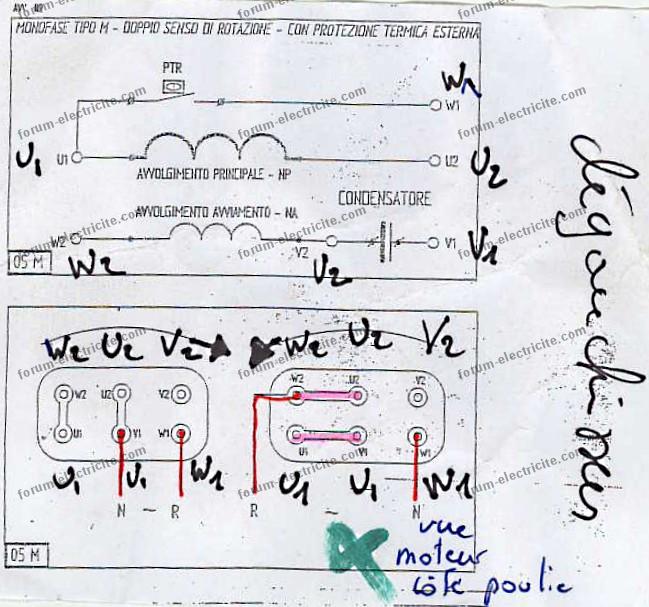 MONOFASE TIPO M - DOPPIO SENSO DI ROTAZIONE - CON PROTEZIONE TERMICA ESTERNA
PTR
W1
W1
U1
U1
U2
U2
AVVOLGIMENTO PRINCIPALE - NP
CONDENSATORE
AVVOLGIMENTO AVVIAMENTO - NA
W2
V2
V1
V1
W2
V2
05 M
dégauchisseuse
W2 U2 V2
W2 U2 V2
W2 U2 V2
W2 U2 V2
U1 V1 W1
U1 V1 W1
U1 V1 W1
U1 V1 W1
N ~ R
R ~ N
vue
moteur
côté poulie
05 M
forum-electricite.com